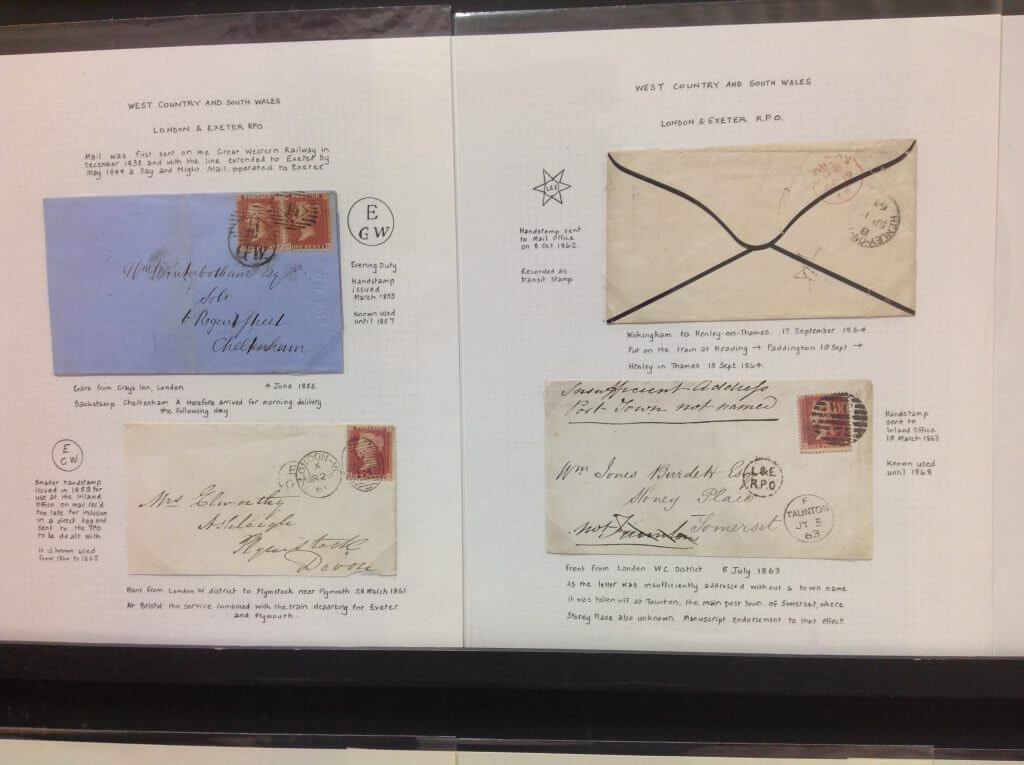 WEST COUNTRY AND SOUTH WALES
LONDON & EXETER RPO
Mail was first sent on the Great Western Railway in
December 1838 and with the line extended to Exeter by
May 1844 a Day and Night Mail operated to Exeter.
E
GW
Evening Duty
Handstamp
issued
March 1855
Known used
until 1857
POSTAGE
POSTAGE
ONE PENNY
GW
Wm Winterbotham Esqr
Solr
6 Regent Street
Cheltenham
Entire from Grays Inn, London 4 June 1855.
Backstamp Cheltenham A therefore arrived for morning delivery
the following day
E
GW
Smaller handstamp
issued in 1859 for
use at the Inland
Office on mail rec'd
too late for inclusion
in a direct bag and
sent to the TPO
to be dealt with
It is known used
from 1860 to 1862
E
G
LONDON-W
X
MR 28
61
Mrs Elworthy
Ashleigh
Plymstock
Devon
Front from London W district to Plymstock near Plymouth 28 March 1861
At Bristol the service combined with the train departing for Exeter
and Plymouth.
WEST COUNTRY AND SOUTH WALES
LONDON & EXETER R.P.O.
L&E
Handstamp sent
to Mail Office
on 8 Oct 1862
Recorded as
transit stamp
HENLEY-ON-T
B
SP 1
64
Wokingham to Henley-on-Thames 17 September 1864
Put on the train at Reading → Paddington 19 Sept →
Henley on Thames 19 Sept 1864.
Insufficient Address
Post Town not named
WC
Wm Jones Burdett Esq
Stoney Place
not Taunton Somerset
L&E
R.P.O.
F
TAUNTON
JY 5
63
Handstamp
sent to
Inland Office
19 March 1863
Known used
until 1868
Front from London WC District 5 July 1863
As the letter was insufficiently addressed without a town name
it was taken off at Taunton, the main post town of Somerset, where
Stoney Place also unknown. Manuscript endorsement to that effect.